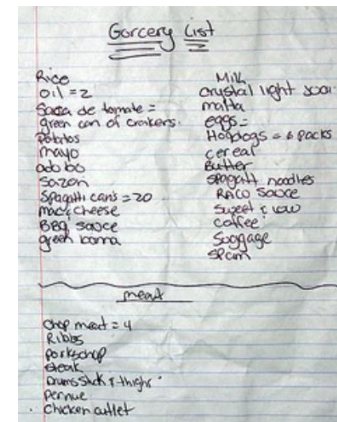 Gorcery List
Rice
Oil = 2
Sacca de tomate =
green can of crakers.
Potatos
mayo
adobo
Sazon
Spagatti can's = 20
mac & cheese
BBQ sauce
green banna
Milk
Crystal light
malta
eggs =
Hotdogs = 6 packs
cereal
Butter
spagatti noodles
RAGU sauce
Sweet & Low
coffee
Suggage
spam
meat
chop meat = 4
Ribbs
porkschop
steak
Drumsstick & thighs
pernue
chicken cutlet